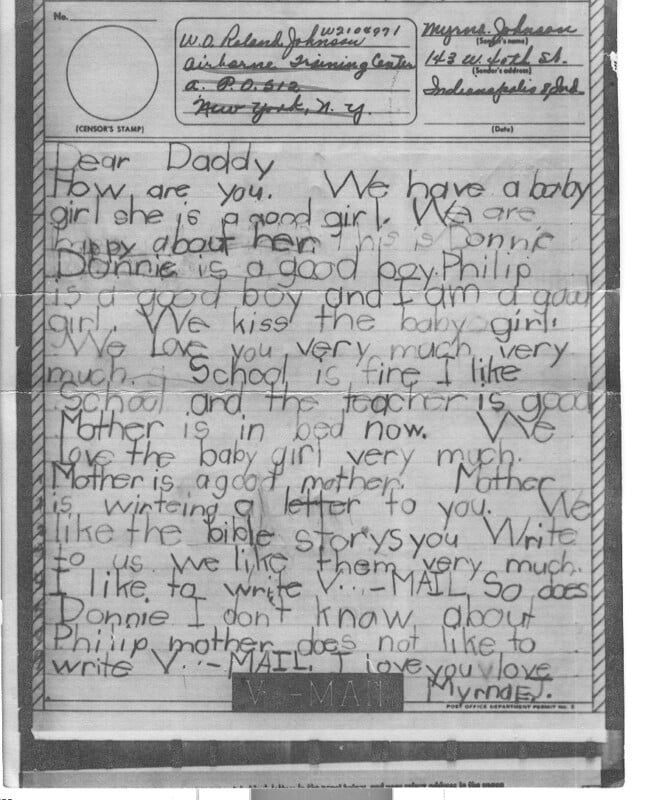 No.
W.O. Roland Johnson W2104971
Airborne Training Center
A.P.O. 512
New York, N.Y.
(CENSOR'S STAMP)
Myrna Johnson
(Sender's name)
143 W. 40th St.
(Sender's address)
Indianapolis 8, Ind.
(Date)
Dear Daddy
How are you. We have a baby
girl she is a good girl. We are
happy about her. This is Donnie
Donnie is a good boy. Philip
is a good boy and I am a good
girl. We kiss the baby girl.
We Love you very much very
much. School is fine I like
School and the teacher is good
Mother is in bed now. We
love the baby girl very much.
Mother is a good mother. Mother
is wirteing a letter to you. We
like the bible storys you Write
to us we like them very much.
I like to write V···-MAIL So does
Donnie I don't know about
Philip mother does not like to
write V···-MAIL. I love you love
Myrna E.J.
V···-MAIL
POST OFFICE DEPARTMENT PERMIT NO. 5